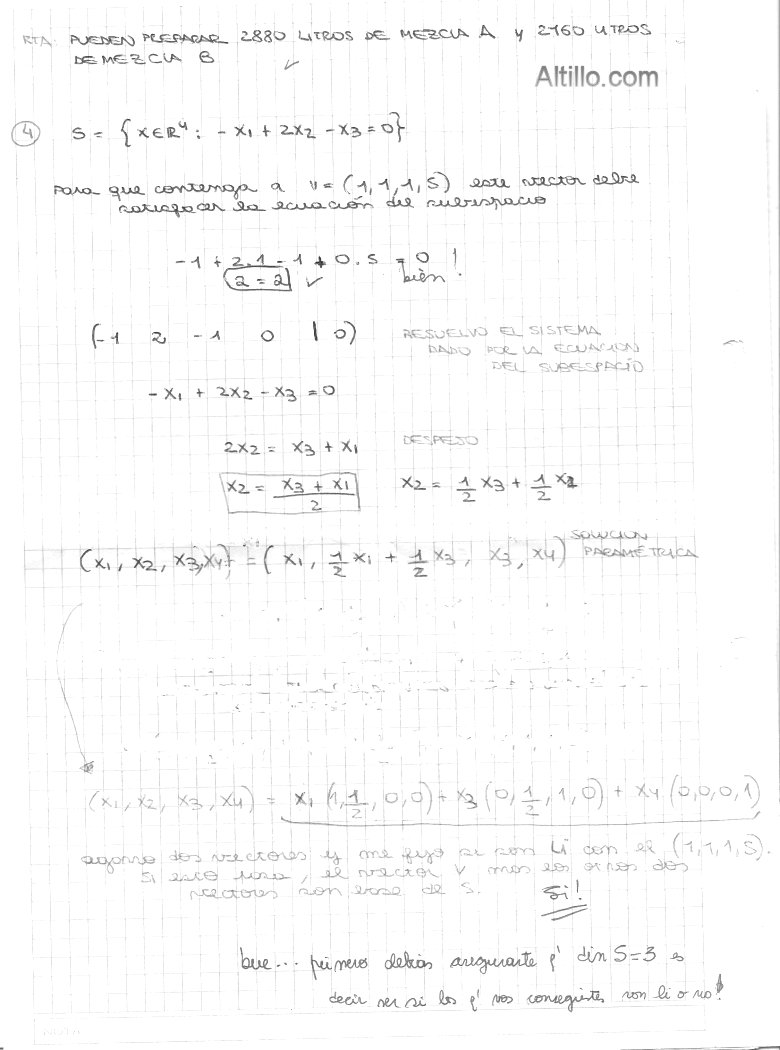 RTA: PUEDEN PREPARAR 2880 LITROS DE MEZCLA A Y 2160 LITROS
DE MEZCLA B ✓
Altillo.com
④ S = {X∈R⁴: - X₁ + 2X₂ - X₃ = 0}
Para que contenga a V = (1,1,1,5) este vector debe
satisfacer la ecuación del subespacio
-1 + 2.1 - 1 + 0.5 = 0
2 = 2 ✓ bien!
(-1 2 -1 0 | 0) RESUELVO EL SISTEMA
DADO POR LA ECUACION
DEL SUBESPACIO
-X₁ + 2X₂ - X₃ = 0
2X₂ = X₃ + X₁ DESPEJO
X₂ = (X₃ + X₁)/2 X₂ = 1/2 X₃ + 1/2 X₁
(X₁, X₂, X₃, X₄) = (X₁, 1/2 X₁ + 1/2 X₃, X₃, X₄) SOLUCION
PARAMÉTRICA
(X₁, X₂, X₃, X₄) = X₁(1, 1/2, 0, 0) + X₃(0, 1/2, 1, 0) + X₄(0,0,0,1)
agarro dos vectores y me fijo si son LI con el (1,1,1,5).
Si esto pasa, el vector V mas los otros dos
vectores son base de S. Si!
bue... primero debías asegurarte q' dim S=3 es
decir ver si los q' vos conseguistes son li o no!